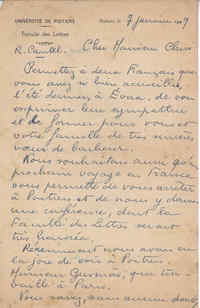 UNIVERSITÉ DE POITIERS
Faculté des Lettres
Poitiers, le 7 janvier
R. Cantel. Cher Monsieur
Permettez à deux Français que
vous avez si bien accueillis,
l'été dernier, à de vous
exprimer leur sympathie
et de former pour vous et
votre famille de très sincères
vœux de bonheur.
Nous souhaitons aussi qu'un
prochain voyage en France
vous permette de vous arrêter
à Poitiers et de nous y donner
une conférence, dont la
Faculté des Lettres serait
très honorée.
Récemment nous avons eu
la joie de voir à Poitiers
Monsieur qui
à Paris.
Vous savez, sans aucun doute